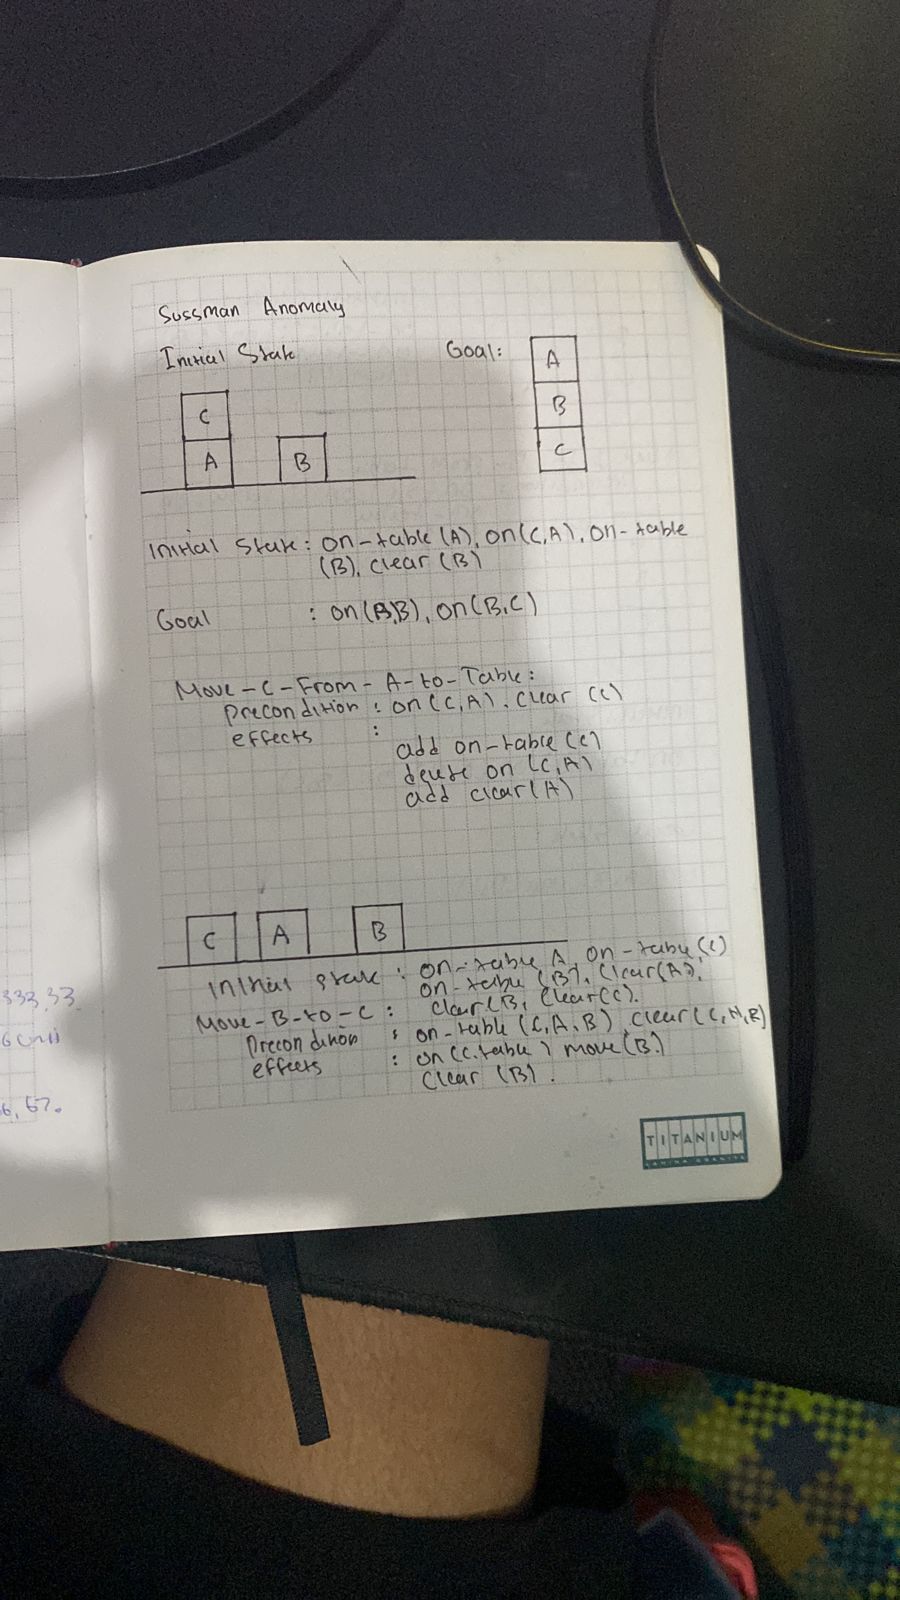 Sussman Anomaly
Initial State
Goal:
A
B
C
C
A
B
Initial State: on-table (A), on(C,A), on-table
(B), clear (B)
Goal : on(B,B), on(B,C)
Move-C-From-A-to-Table:
Precondition : on(C,A), clear (C)
effects :
add on-table (C)
delete on (C,A)
add clear(A)
C A B
Initial state : on-table A, on-table (C)
on-table (B), Clear(A),
Clear(B, Clear(C).
Move-B-to-C :
Precondition : on-table (C,A,B), clear(C,A,B)
effects : on(C,table) move(B)
Clear (B).
333,33.
6, 67.
TITANIUM